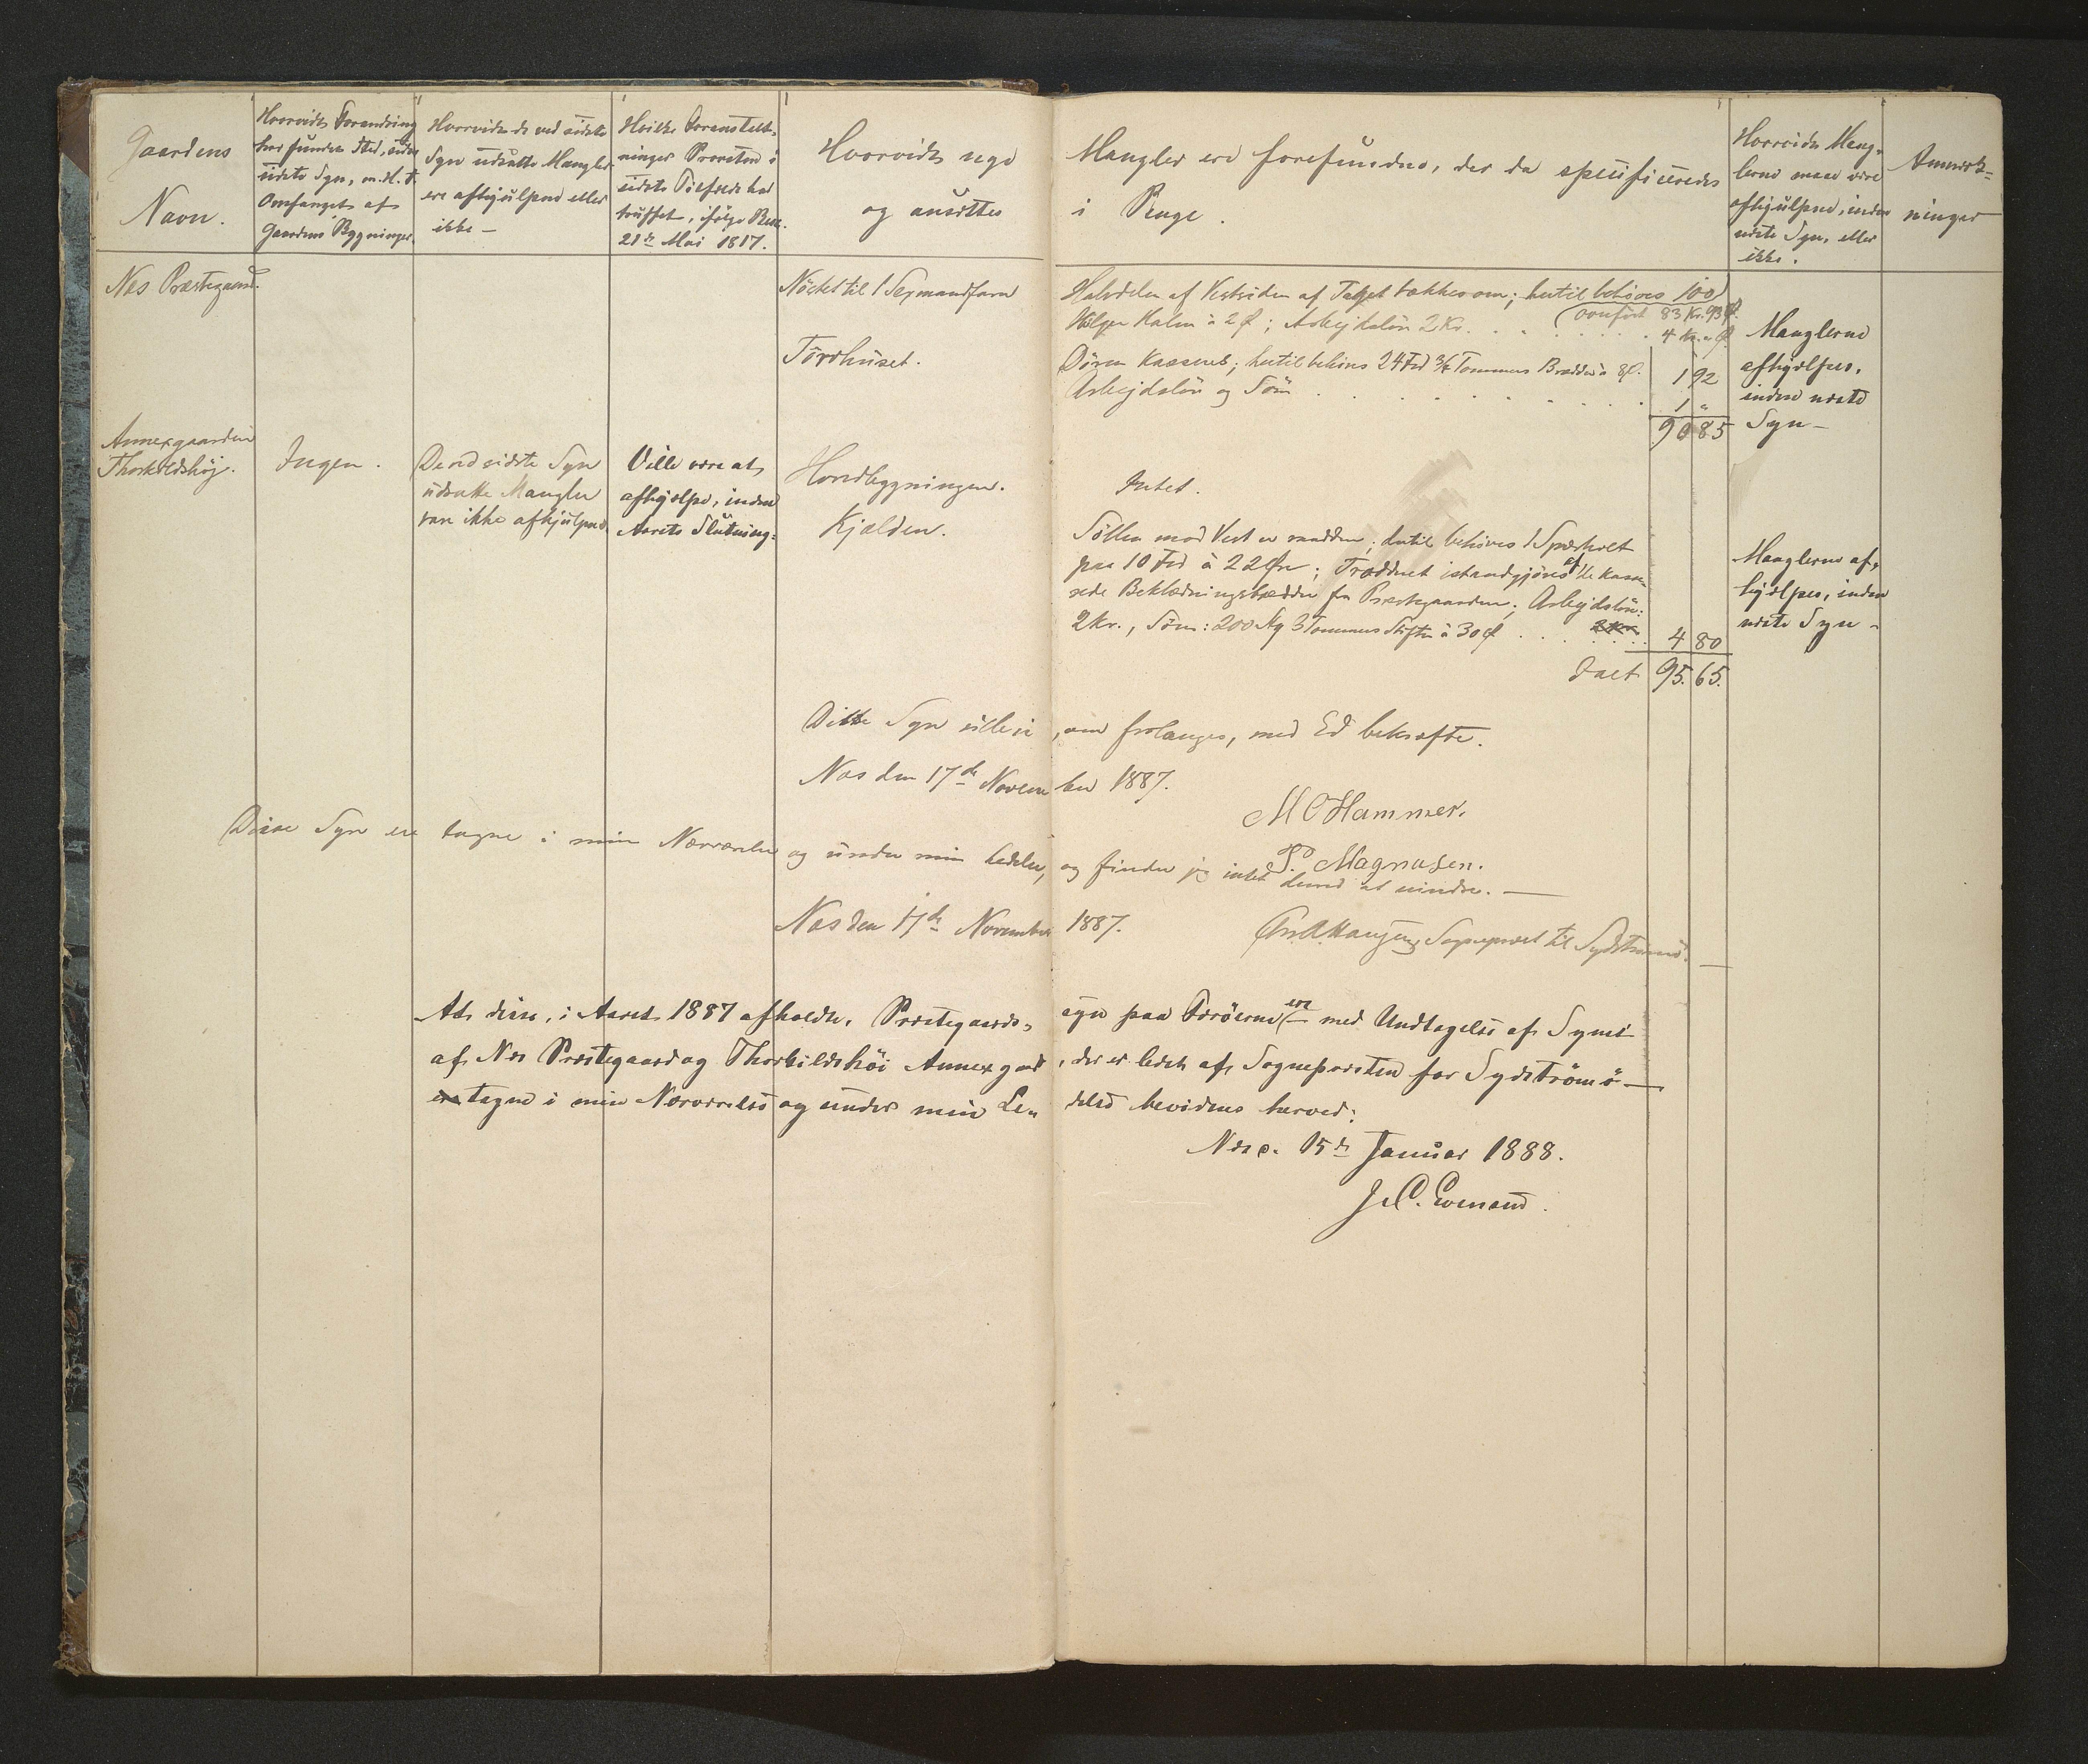 Gaardens
Navn.
Hvorvidt Forandring
har fundet Sted, siden
sidste Syn, m. H. t.
Omfanget af
Gaardens Bygninger.
Hvorvidt de ved sidste
Syn udsatte Mangler
ere afhjulpne eller
ikke –
Hvilke Foranstalt-
ninger Provsten i
sidste Tilfælde har
truffet, ifølge Res.
21de Mai 1817.
Hvorvidt nye
og ansættes
Mangler ere forefundne, der da specificeres
i Penge.
Hvorvidt Mang-
lerne maae være
afhjulpne, inden
næste Syn, eller
ikke.
Anmærk-
ninger
Næs Præstegaard.
Nöstet til 1 Sexmandfarn
Halvdelen af Vestsiden af Taget tækkes om; hertil behöves 100
Halm à 2 Ø; Arbejdslön 2 Kr.
overfört 83 Kr. 93 Ø.
4 Kr. " Ø
Törvhuset.
Dören kasseret; hertil behöves 24 Fod 3/4 Tommers Brædder à 8 Ø.
1 92
Arbejdslön og Söm
1 "
90 85
Manglerne
afhjælpes,
inden næste
Syn –
Annexgaarden
Thorkildshöj.
Ingen.
De ved sidste Syn
udsatte Mangler
vare ikke afhjulpne.
Ville være at
afhjælpe, inden
Aarets Slutning.
Hovedbygningen.
Intet.
Kjælderen.
mod Vest er raadden; hertil behöves 1
paa 10 Fod à 22 Öre; istandgjöres af de kasse-
rede Beklædningsbrædder fra Præstegaarden; Arbejdslön:
2 Kr., Söm: 200 Stq 3 Tommers Stifter à 30 Ø
4 80
Ialt 95. 65.
Manglerne af-
hjælpes, inden
næste Syn –
Dette Syn ville vi, om forlanges, med Ed bekræfte.
Næs den 17de November 1887.
M C Hammer.
P. Magnusen.
Disse Syn ere tagne i min Nærværelse og under min Ledelse, og finder jeg intet derved at erindre. –
Næs den 17de November 1887.
Sognepræst til Sydströmö.
At disse, i Aaret 1887 afholdte, Præstegaards-syn paa Færöerne ere – med Undtagelse af Synet
af Næs Præstegaard og Thorkildshöi Annexgaard, der er ledet af Sognepræsten for Sydströmö –
tagne i min Nærværelse og under min Le-delse bevidnes herved:
Næs d. 15de Januar 1888.
J. C. Evensen.